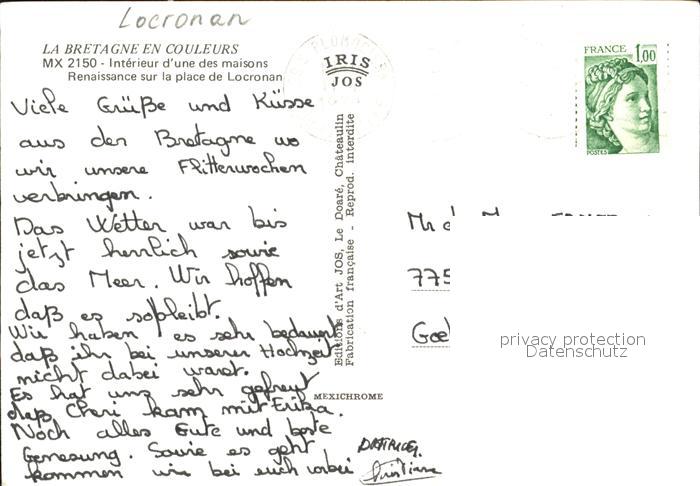 Locronan
LA BRETAGNE EN COULEURS
MX 2150 - Intérieur d'une des maisons
Renaissance sur la place de Locronan
IRIS
JOS
FRANCE 1,00
POSTES
Viele Grüße und Küsse
aus der Bretagne wo
wir unsere Flitterwochen
verbringen.
Das Wetter war bis
jetzt herrlich sowie
das Meer. Wir hoffen
daß es so bleibt.
Wir haben es sehr bedauert
daß ihr bei unserer Hochzeit
nicht dabei waret.
Es hat uns sehr gefreut
daß Cheri kam mit Erika.
Noch alles Gute und beste
Genesung. Sowie es geht
kommen wir bei euch vorbei
Editions d'Art JOS, Le Doaré, Châteaulin
Fabrication française - Reprod. Interdite
MEXICHROME
775
privacy protection
Datenschutz